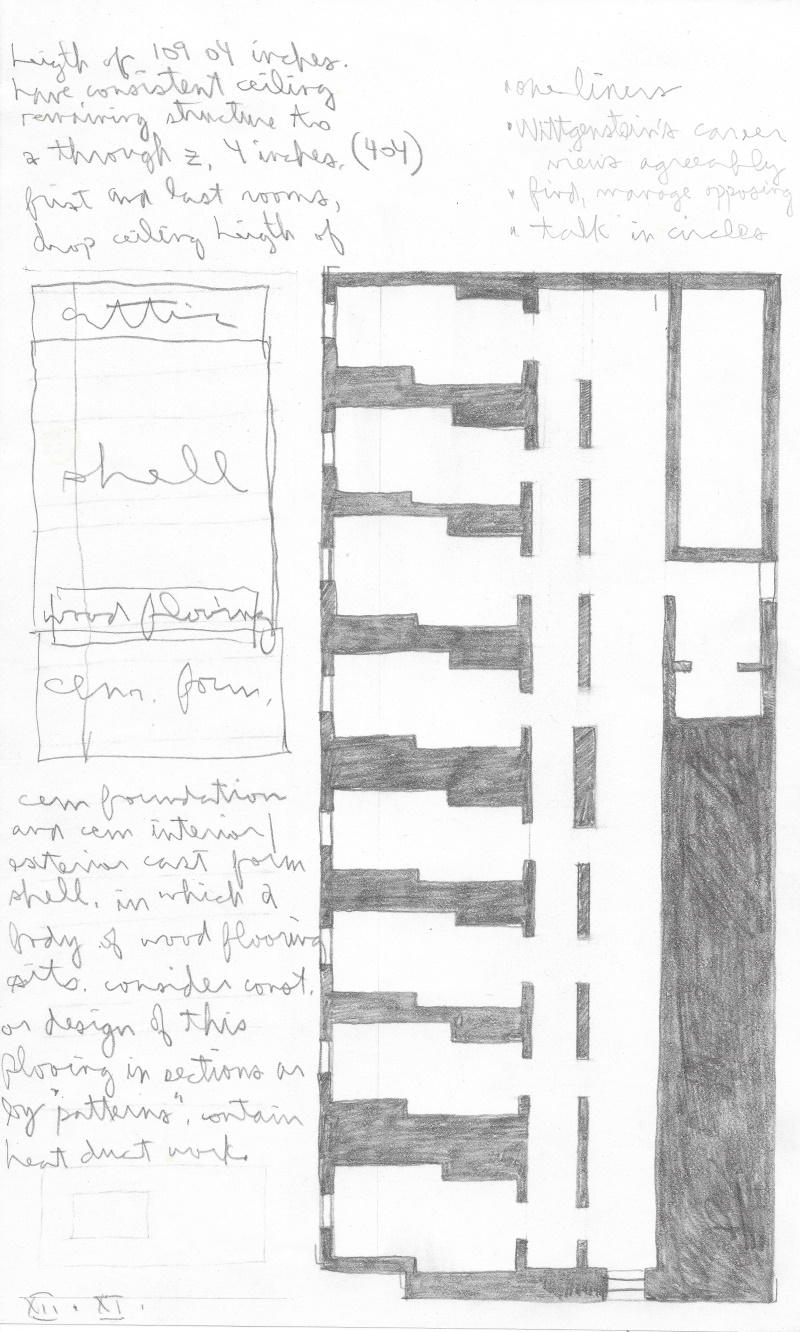 heigth of 109 04 inches.
have consistent ceiling
remaining structure two
a through z, 4 inches. (404)
first and last rooms,
drop ceiling heigth of
one liners
• Wittgenstein's career
views agreeably
• find, manage opposing
• talk in circles
attic
shell
wood flooring
cem. form.
cem foundation
and cem interior/
exterior cast form
shell. in which a
body of wood flooring
sits. consider const.
or design of this
flooring in sections or
by "patterns". contain
heat duct work.
XII. XI.